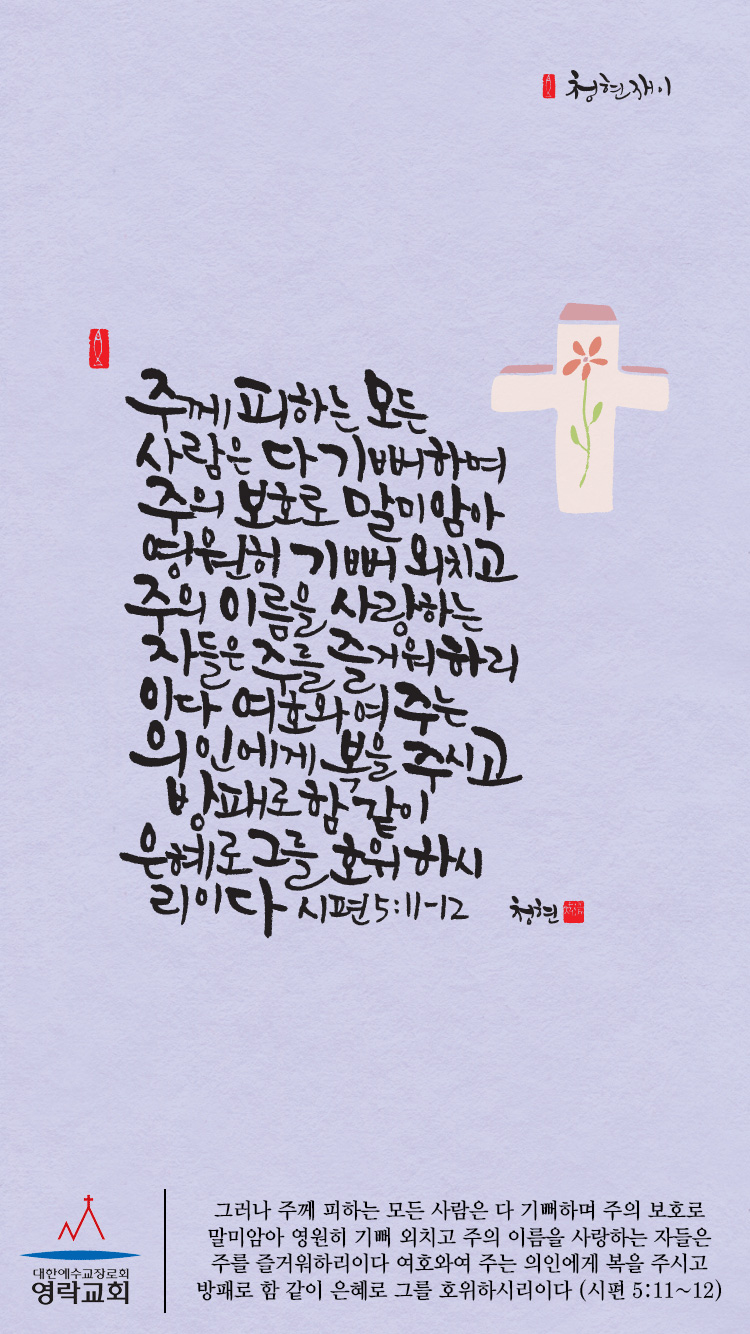 청현재이
주께 피하는 모든
사람은 다 기뻐하며
주의 보호로 말미암아
영원히 기뻐 외치고
주의 이름을 사랑하는
자들은 주를 즐거워하리
이다 여호와여 주는
의인에게 복을 주시고
방패로 함 같이
은혜로 그를 호위하시
리이다 시편 5:11-12
청현
대한예수교장로회
영락교회
그러나 주께 피하는 모든 사람은 다 기뻐하며 주의 보호로
말미암아 영원히 기뻐 외치고 주의 이름을 사랑하는 자들은
주를 즐거워하리이다 여호와여 주는 의인에게 복을 주시고
방패로 함 같이 은혜로 그를 호위하시리이다 (시편 5:11~12)